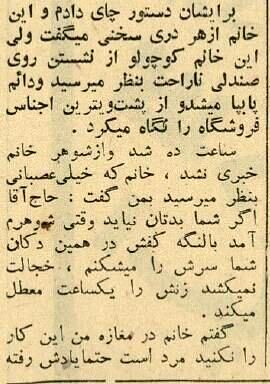 برایشان دستور چای دادم و این
خانم ازهر دری سخنی میگفت ولی
این خانم کوچولو از نشستن روی
صندلی ناراحت بنظر میرسید ودائم
پابپا میشدو از پشت‌ویترین اجناس
فروشگاه را نگاه میکرد .
ساعت ده شد وازشوهر خانم
خبری نشد ، خانم‌که خیلی‌عصبانی
بنظر میرسید بمن گفت : حاج‌آقا
اگر شما بدتان نیاید وقتی شوهرم
آمد بالنگه کفش در همین دکان
شما سرش را میشکنم ، خجالت
نمیکشد زنش را یکساعت معطل
میکند .
گفتم خانم در مغازه من این کار
را نکنید مرد است حتمایادش رفته